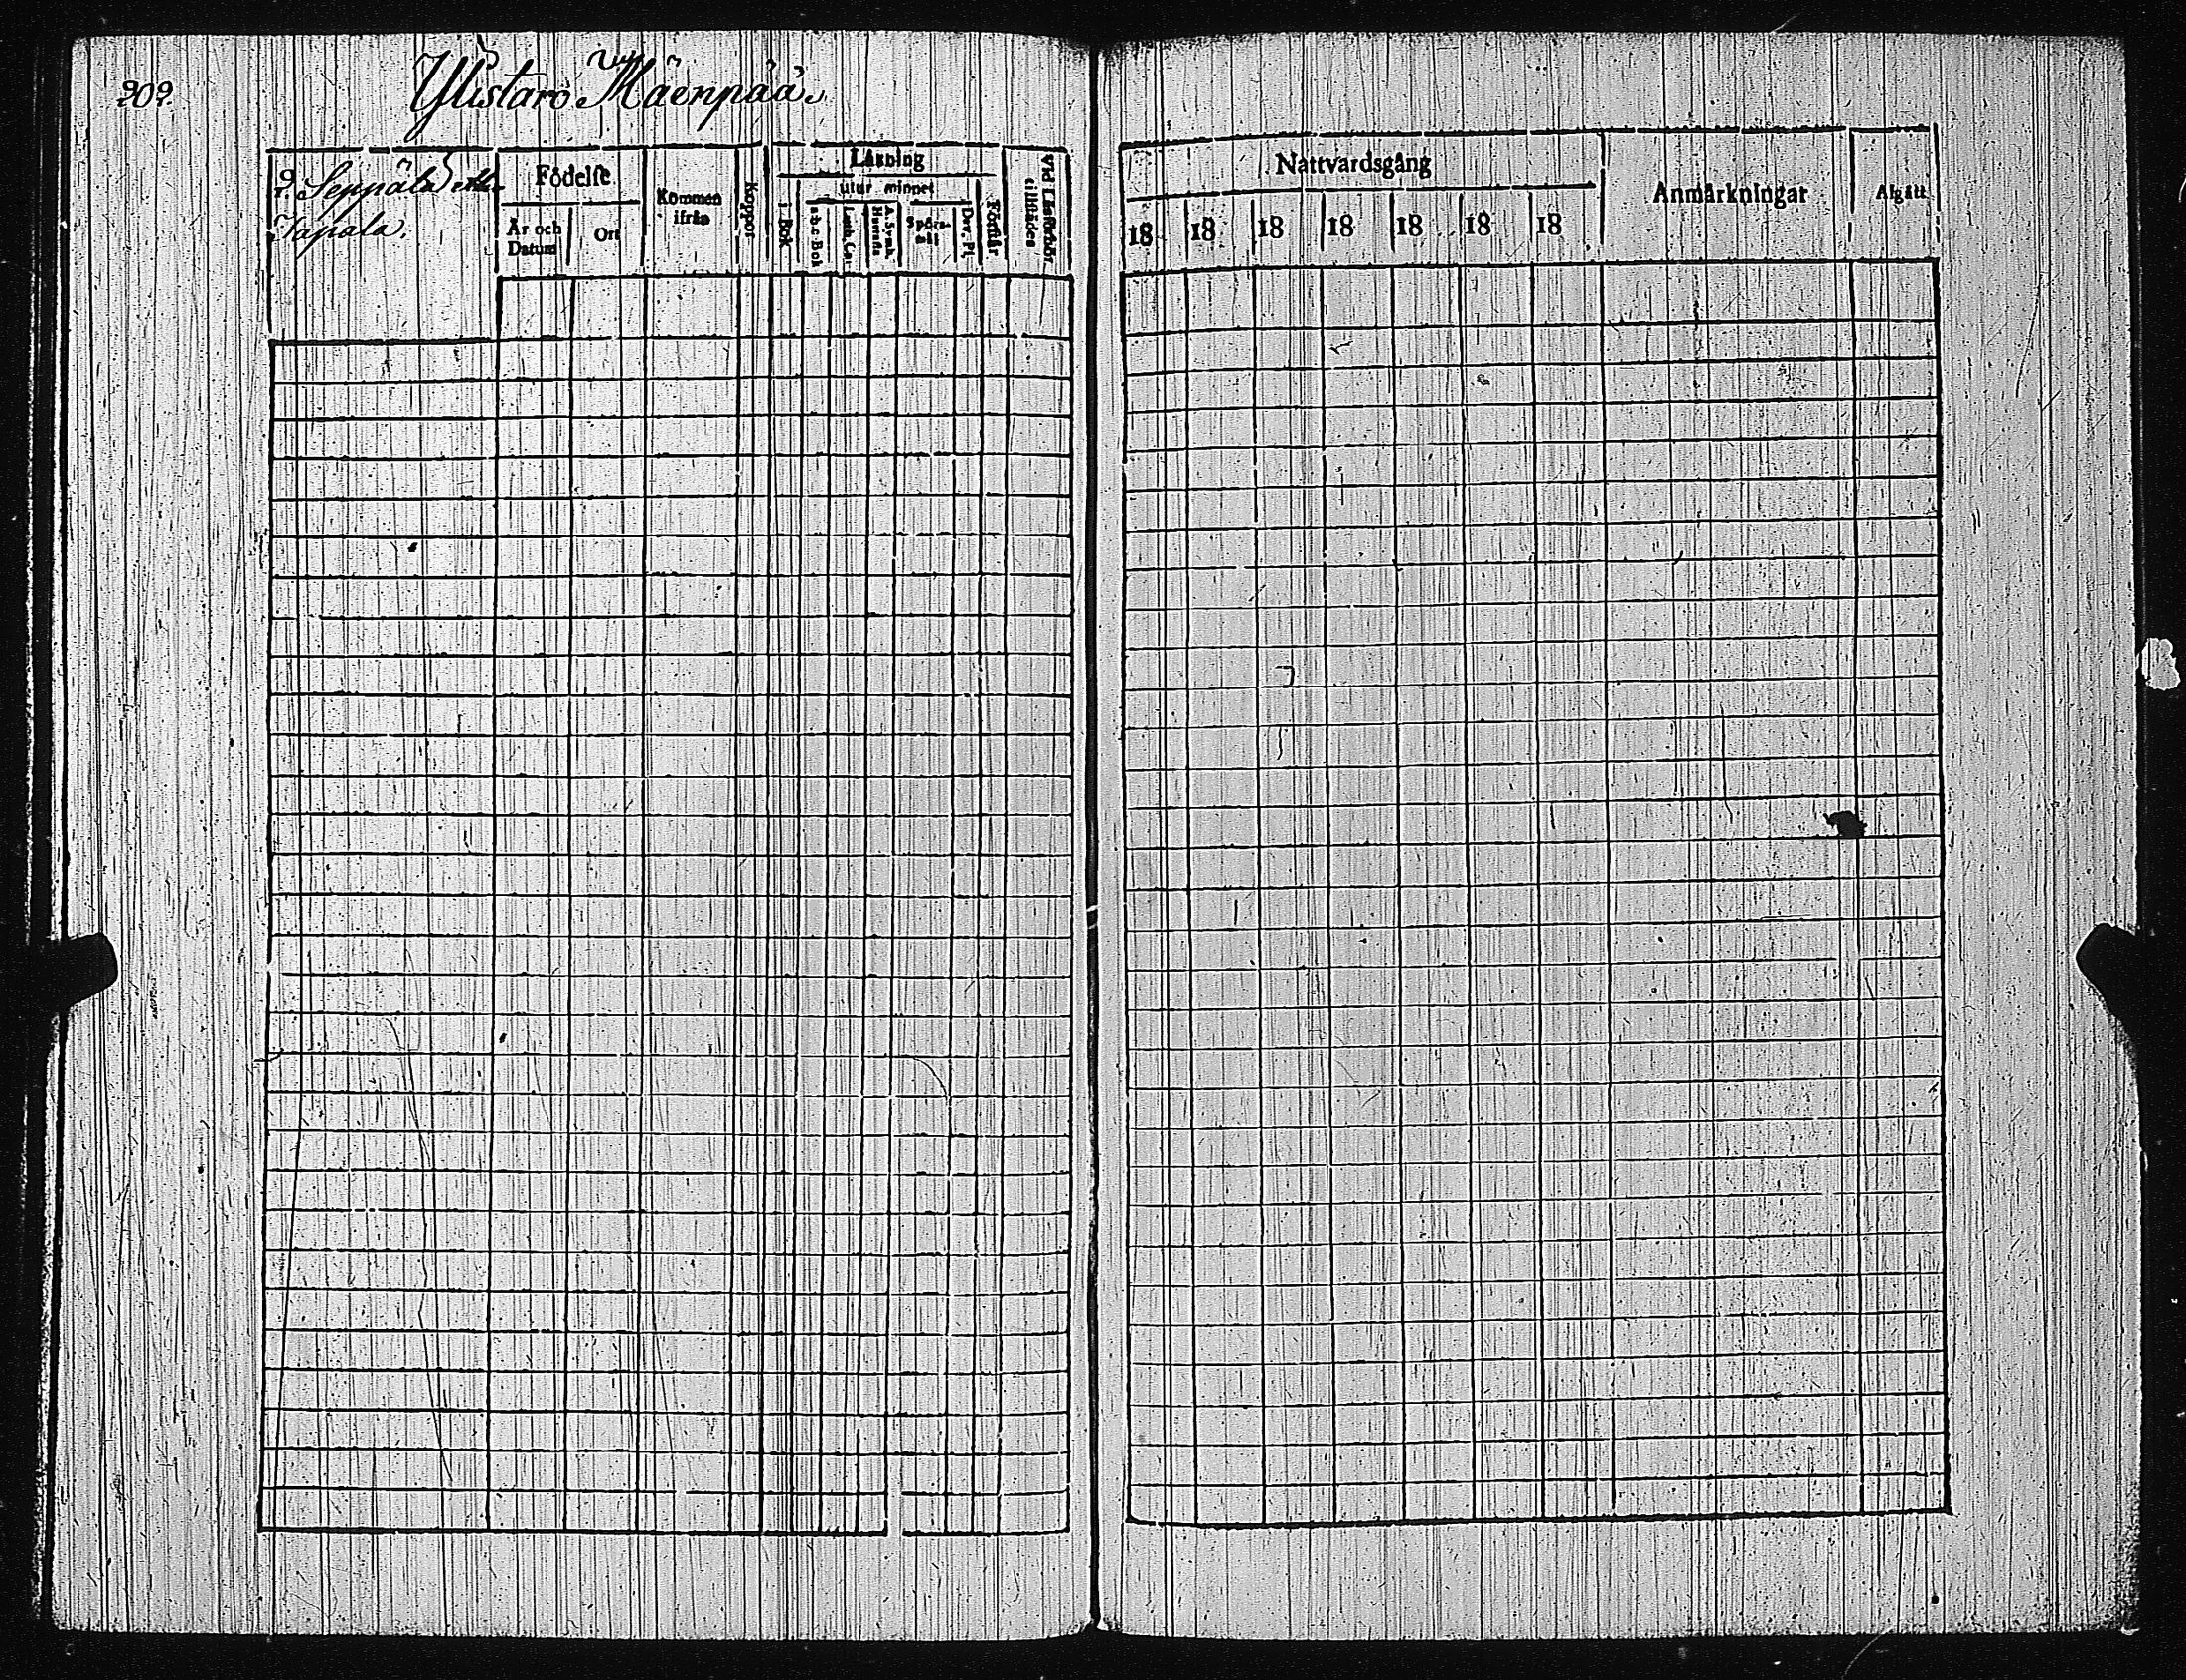 202.
Ylistaro Mäenpää.
Läsning
Seppälä
Födelse
Kommen ifrån
Koppor
utur minnet
Vid Läsförhör tillstädes
Nattvardsgång
Anmärkningar
Afgått
Wapala.
År och Datum
Ort
i Bok
a b c Bok
Luth. Cat.
A. Symb. Hustafla
Spörs-mål
Dav. Ps.
Förstår
18 18 18 18 18 18 18